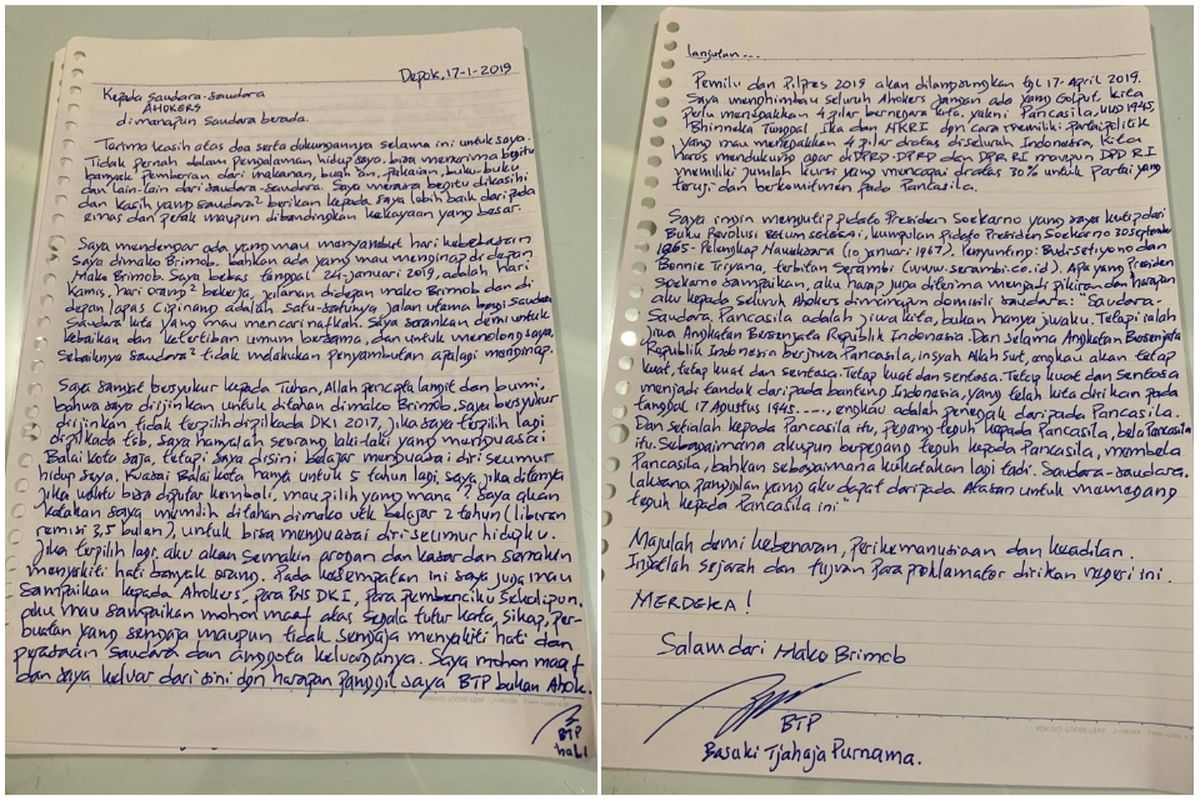 Depok, 17-1-2019
Kepada saudara-saudara
AHOKERS
dimanapun saudara berada.
Tarima kasih atas doa serta dukungannya selama ini untuk saya.
Tidak pernah dalam pengalaman hidup saya, bisa menerima begitu
banyak pemberian dari makanan, buah²an, pakaian, buku-buku
dan lain-lain dari saudara-saudara. Saya merasa begitu dikasihi
dan kasih yang saudara² berikan kepada saya lebih baik daripada
emas dan perak maupun dibandingkan kekayaan yang besar.
Saya mendengar ada yang mau menyambut hari kebebasan
saya dimako Brimob. bahkan ada yang mau menginap di depan
Mako Brimob. Saya bebas tanggal 24-januari 2019, adalah hari
Kamis, hari orang² bekerja, jalanan didepan mako Brimob dan di
depan lapas Cipinang adalah satu-satunya jalan utama bagi saudara
Saudara kita yang mau mencari nafkah. Saya sarankan demi untuk
kebaikan dan ketertiban umum bersama, dan untuk menolong saya,
Sebaiknya saudara² tidak melakukan penyambutan apalagi menginap.
Saya sangat bersyukur kepada Tuhan, Allah pencipta langit dan bumi,
bahwa saya diijinkan untuk ditahan dimako Brimob. Saya bersyukur
diijinkan tidak terpilih dipilkada DKI 2017, jika saya terpilih lagi
dipilkada tsb, saya hanyalah seorang laki-laki yang menguasai
Balai kota saja, tetapi saya disini belajar menguasai diri seumur
hidup saya. Kuasai Balai kota hanya untuk 5 tahun lagi, saya jika ditanya
jika waktu bisa diputar kembali, mau pilih yang mana? saya akan
katakan saya memilih ditahan dimako utk belajar 2 tahun (liburan
remisi 3,5 bulan), untuk bisa menguasai diri seumur hidupku.
Jika terpilih lagi, aku akan semakin arogan dan kasar dan semakin
menyakiti hati banyak orang. Pada kesempatan ini saya juga mau
sampaikan kepada Ahokers, para PNS DKI, para pembenciku sekalipun,
aku mau sampaikan mohon maaf atas segala tutur kata, sikap, per-
buatan yang sengaja maupun tidak sengaja menyakiti hati dan
perasaan saudara dan anggota keluarganya. Saya mohon maaf
dan saya keluar dari sini dgn harapan panggil saya BTP bukan Ahok.
BTP
hal 1
lanjutan...
Pemilu dan Pilpres 2019 akan dilangsungkan tgl 17-April 2019.
Saya menghimbau seluruh Ahokers jangan ada yang Golput, kita
perlu menegakkan 4 pilar bernegara kita, yakni Pancasila, UUD 1945,
Bhinneka Tunggal, Ika dan NKRI dgn cara memiliki partai politik
yang mau menegakkan 4 pilar diatas diseluruh Indonesia, Kita
harus mendukung agar di DPRD-DPRD dan DPR RI maupun DPD RI
memiliki jumlah kursi yang mencapai diatas 30% untuk Partai yang
teruji dan berkomitmen pada Pancasila.
Saya ingin mengutip pidato Presiden Soekarno yang saya kutip dari
Buku Revolusi BELUM SELESAI, kumpulan pidato Presiden Soekarno 30 September
1965 - Pelengkap Nawaksara (10 januari 1967). Penyunting: Budi Setiyono dan
Bonnie Triyana, terbitan Serambi (www.serambi.co.id). Apa yang Presiden
Soekarno sampaikan, aku harap juga diterima menjadi pikiran dan harapan
aku kepada seluruh Ahokers dimanapun domisili saudara: "Saudara-
Saudara, Pancasila adalah jiwa kita, bukan hanya jiwaku. Tetapi ialah
jiwa Angkatan Bersenjata Republik Indonesia. Dan Selama Angkatan Bersenjata
Republik Indonesia berjiwa Pancasila, insyah Allah Swt, engkau akan tetap
kuat, tetap kuat dan sentosa. Tetap kuat dan sentosa. Tetap kuat dan sentosa
menjadi tanduk daripada banteng Indonesia, yang telah kita dirikan pada
tanggal 17 Agustus 1945....., engkau adalah penegak daripada Pancasila.
Dan setialah kepada Pancasila itu, pegang teguh kepada Pancasila, bela Pancasila
itu. Sebagaimana akupun berpegang teguh kepada Pancasila, membela
Pancasila, bahkan sebagaimana kukatakan lagi tadi. Saudara-saudara,
laksana panggilan yang aku dapat daripada Atasan untuk memegang
teguh kepada Pancasila ini"
Majulah demi kebenaran, Perikemanusiaan dan keadilan.
Ingatlah sejarah dan tujuan Para proklamator dirikan negeri ini.
MERDEKA!
Salam dari Mako Brimob
BTP
Basuki Tjahaja Purnama.